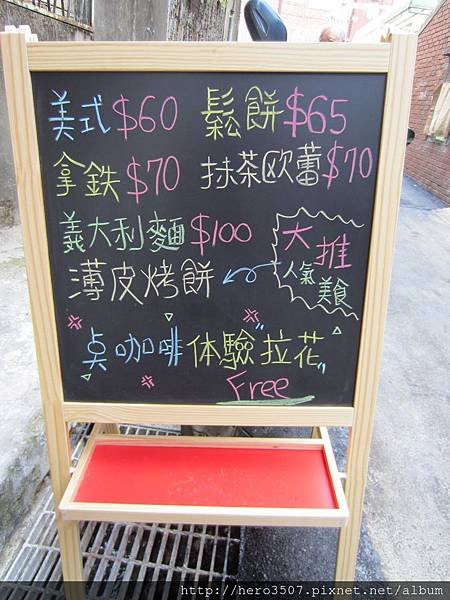 美式$60 鬆餅$65
拿鉄$70 抹茶欧蕾$70
義大利麵$100
薄皮烤餅
大推
人氣美食
点咖啡体驗"拉花"
Free
http://hero3507.pixnet.net/album